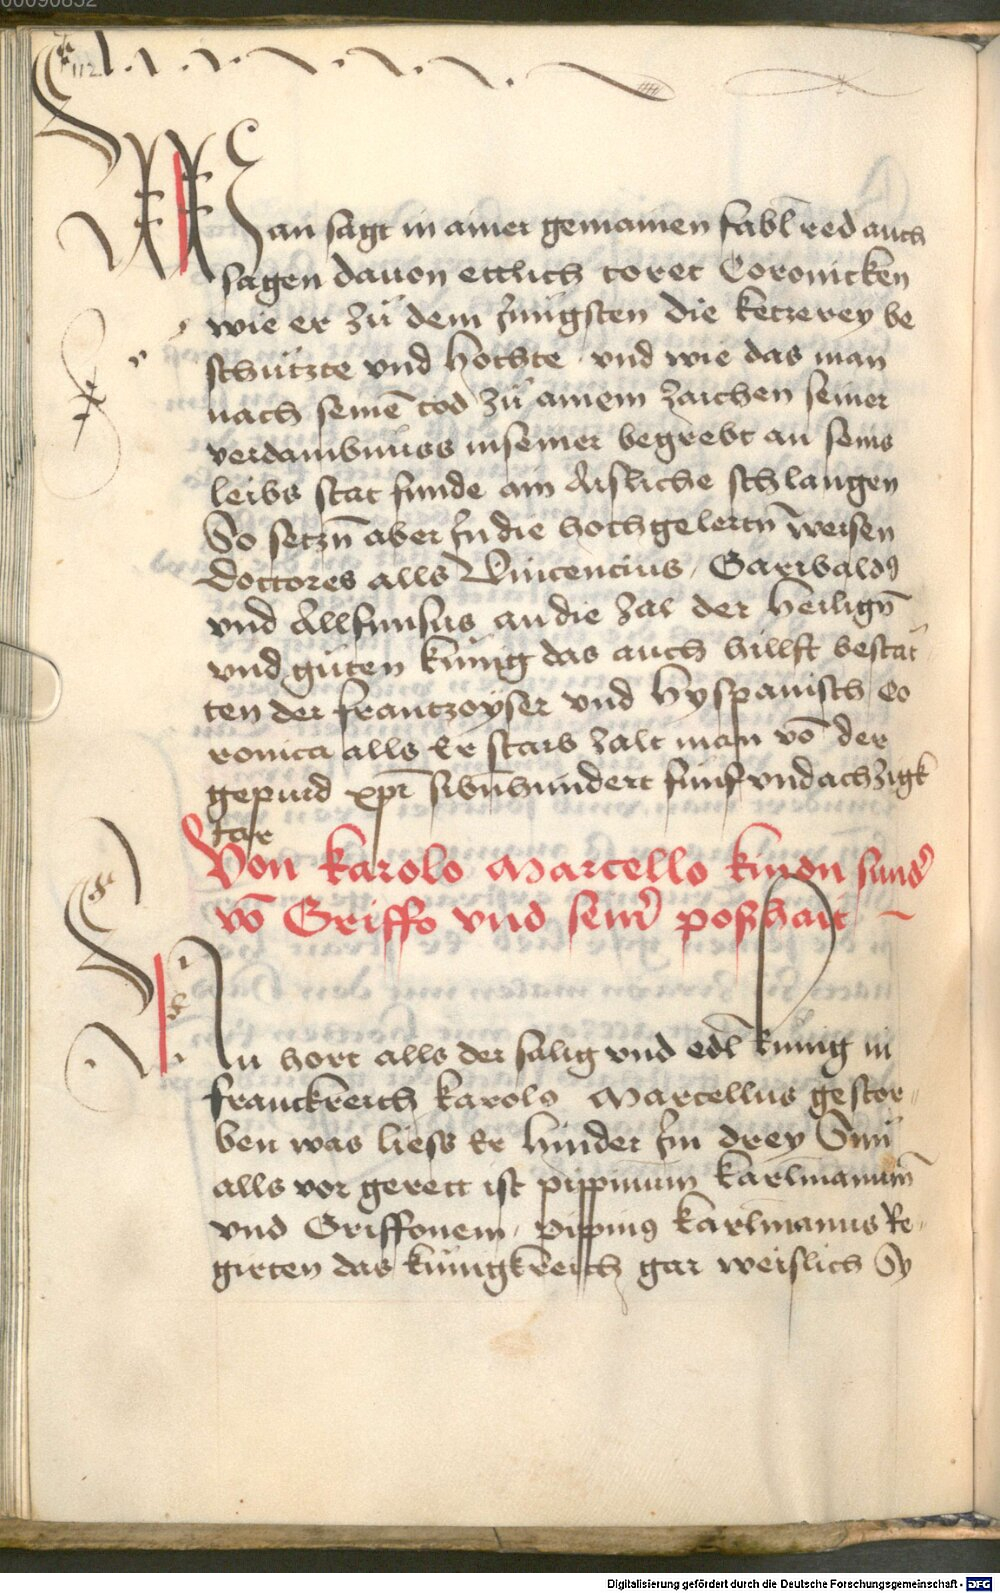 00090852
112
Man sagt in ainer gemainen fabl red auch
sagen dauon ettlich toret Coronicken
wie er zü dem Jungsten die ketzerey be
schützte vnd hochte · vnd wie das man
nach seinē tod zü ainem zaichen seiner
verdambnuss inseiner begrebt an seins
leibs stat funde ain Aisliche schlangen
So setzn̄ aber Jn die hochgelertn̄ weisen
doctores alls Vincencius, Garibaldꝰ
vnd Allfunsus an die zal der heilign̄
vnd guten künig das auch hillft bestät
ten der frantzoyser vnd hyspanisch Co
ronica alls Er starb zalt man vō der
gepurd xp̄i sibn̄hundert funf vnd achzigk
Jar
Von karolo Marcello kindn sund̛
vō Griffo vnd sein̛ poßhait
Nu hort alls der salig vnd edl̄ kunig in
franckreich karolꝰ Marcellus gestor-
ben was liess Er hinder Jm drey Sun
alls vor gerett ist pippinum karlmanum̄
vnd Griffonem, Pippinꝰ karlmanus Re-
girten das künigkreich gar weislich Sy
Digitalisierung gefördert durch die Deutsche Forschungsgemeinschaft - DFG